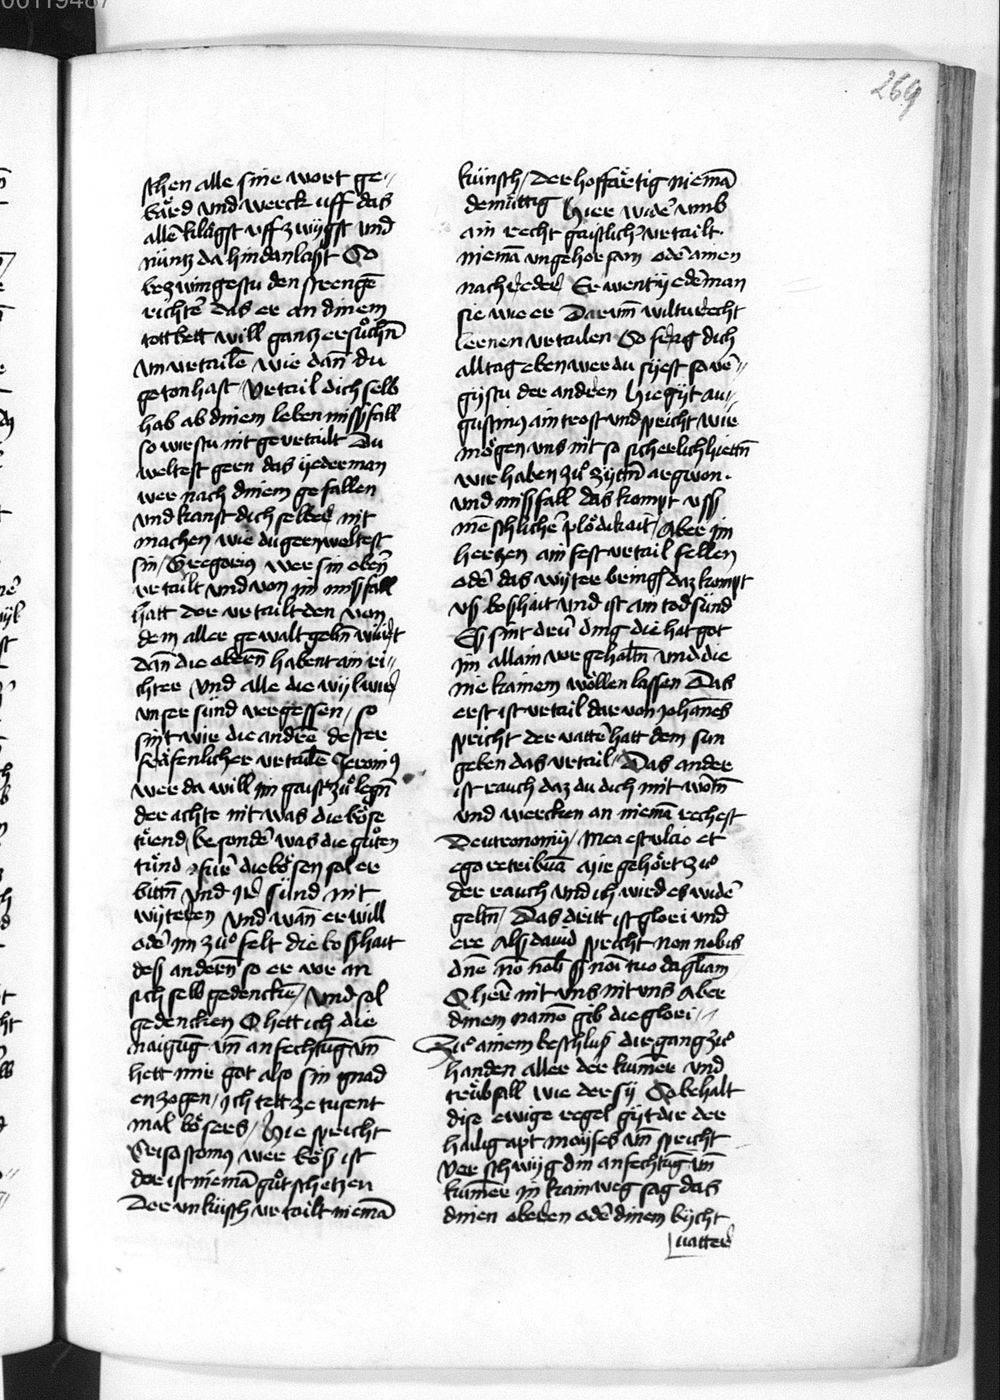 00119487
269
schen alle sine wort ge„
bärd vnd werck uff das
allē klügst vff zwijgst vnd
nüntz da hindan laſst So
bezwingestu den strengē
richtē das er an dinem
tottbett will gantz ersůchn̄
vn vrtailē wie dan̄ du
geton hast Vrtail dich selb
hab ab dinem leben missfall
so wirstu nit gevrtailt Du
weltest gern das yederman
wer nach dinem gefallen
vnd kanst dich selber nit
machen wie du gern weltest
sin / Gregorius wer sin obeñ
vrtailt vnd von jm missfall
hatt der vrtailt den von
dem aller gewalt gebñ würt
dan̄ die obern̄ habent ain ri„
chter vnd alle die wijl wir
vnser sünd vergessen / so
sint wir die andrē dester
fräfenlicher vrtailē Jeronimꝰ
wer da will jm gaist zů legn̄
der achte nit was die böse
tüend / besonder was die gůten
tünd / für die bösen sol er
bittn̄ vnd jr sünd nit
wijtern vnd wan̄ er will
oder jm zů felt die boshait
des andern̄ so er vor an
sich selb gedenckē / vnd sol
gedencken O hett ich die
naigūg vn̄ anfechtūg vn̄
hett mir got also sin gnad
enzogen / ich tett ze tusent
mal bösers / Hie spricht
Crisostomꝰ wer bös ist
der ist niemā gůt schetzen
Der vnküsch vrtailt niemā
künsch / der hoffärtig niemā
demüttig Hier wider vmb
ain recht gaistlichꝰ vrtailt
niemā vngehorsam oder ainen
nachreder Er went yederman
sie wie er Darum̄ wiltu recht
lernen vrtailen So frag dich
alltag eben wer du syest so ver„
gistu der andren Hie gijt au„
gustinꝰ ain trost vnd spricht wir
mögen vns nit so sicherlich hiettn̄
wir haben zů zijttn̄ argwon.
vnd missfall das kompt vss
mēschlicher plödikait / Aber jm
hertzen ain fest vrtail fellen
oder das wijter bringē daz kompt
vſs boshait vnd ist ain tod sünd
Es sint drü ding die hat got
jm allain vor gehaltn̄ vnd die
nie kainem wöllen lassen Das
erst ist vrtail dar von Johānes
spricht der vatter hatt dem sun
geben das vrtail / Das ander
ist rauch daz du dich mit wortn̄
vnd wercken an niemā rechest
Deutronomij / Mea est ulcio et
ego retribuā Mir gehört zů
der rauch vnd ich wird es wider
gebn̄ / Das dritt ist glori vnd
ere Als dauid sprecht non nobis
dn̄e nō nob̄ s noī tuo da gl̄iam
O herr nit vns nit vns Aber
dinem namē gib die glori /
Zů ainem beschluß dir gang zů
handen aller der kumer vnd
trübsall wie der sij So behalt
dise ewige regel gijt dir der
hailig apt moijses vn̄ spricht
Verschwijg din anfechtūg vn̄
kumer in kain weg sag das
dinen obren oder dinem bijcht
uatter